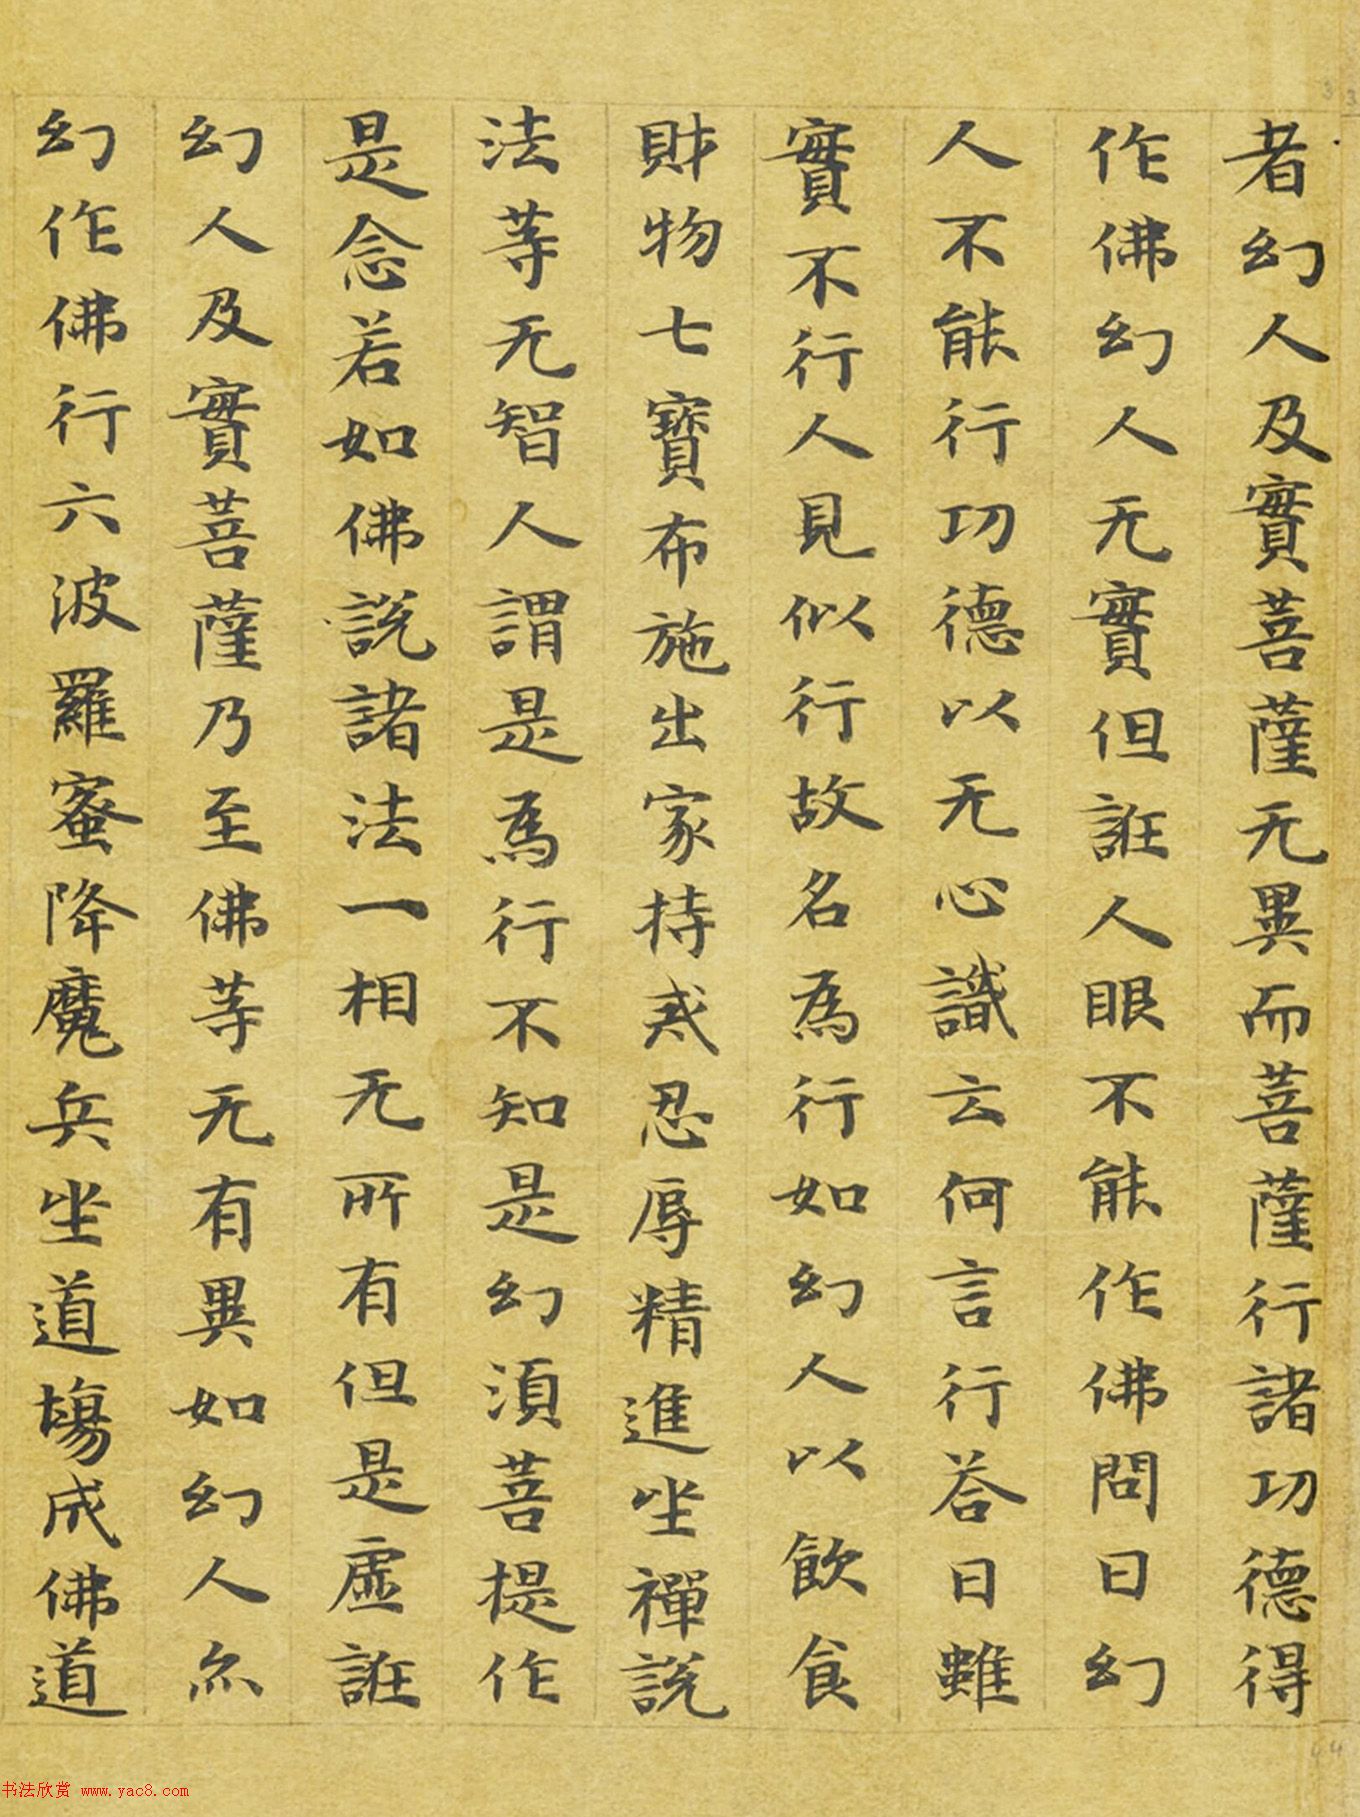 者幻人及實菩薩无異而菩薩行諸功德得
作佛幻人无實但誑人眼不能作佛問曰幻
人不能行功德以无心識云何言行荅曰雖
實不行人見似行故名為行如幻人以飲食
財物七寶布施出家持戒忍辱精進坐禪說
法等无智人謂是為行不知是幻須菩提作
是念若如佛說諸法一相无所有但是虛誑
幻人及實菩薩乃至佛等无有異如幻人亦
幻作佛行六波羅蜜降魔兵坐道場成佛道
书法欣赏 www.yac8.com